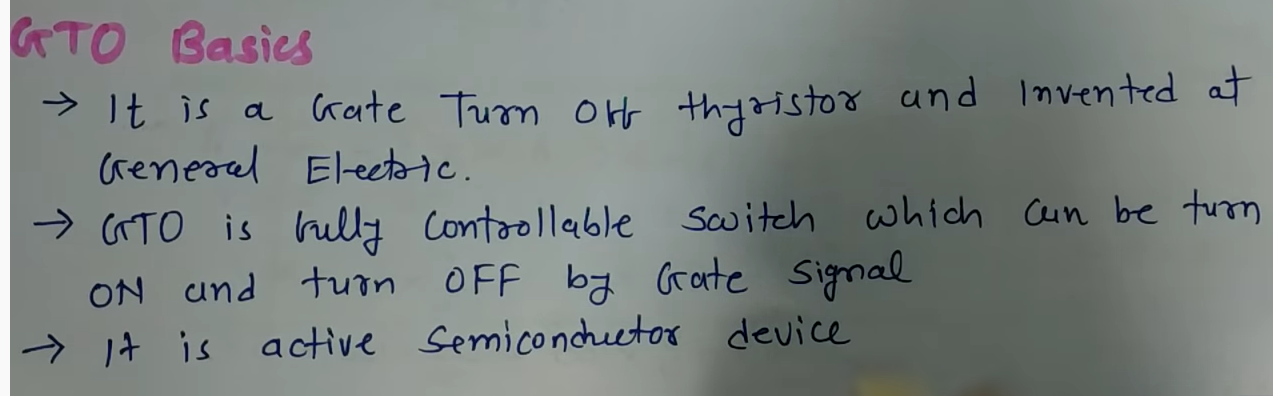 GTO Basics
→ It is a Gate Turn Off thyristor and Invented at
General Electric.
→ GTO is fully Controllable Switch which can be turn
ON and turn OFF by Gate Signal
→ It is active Semiconductor device